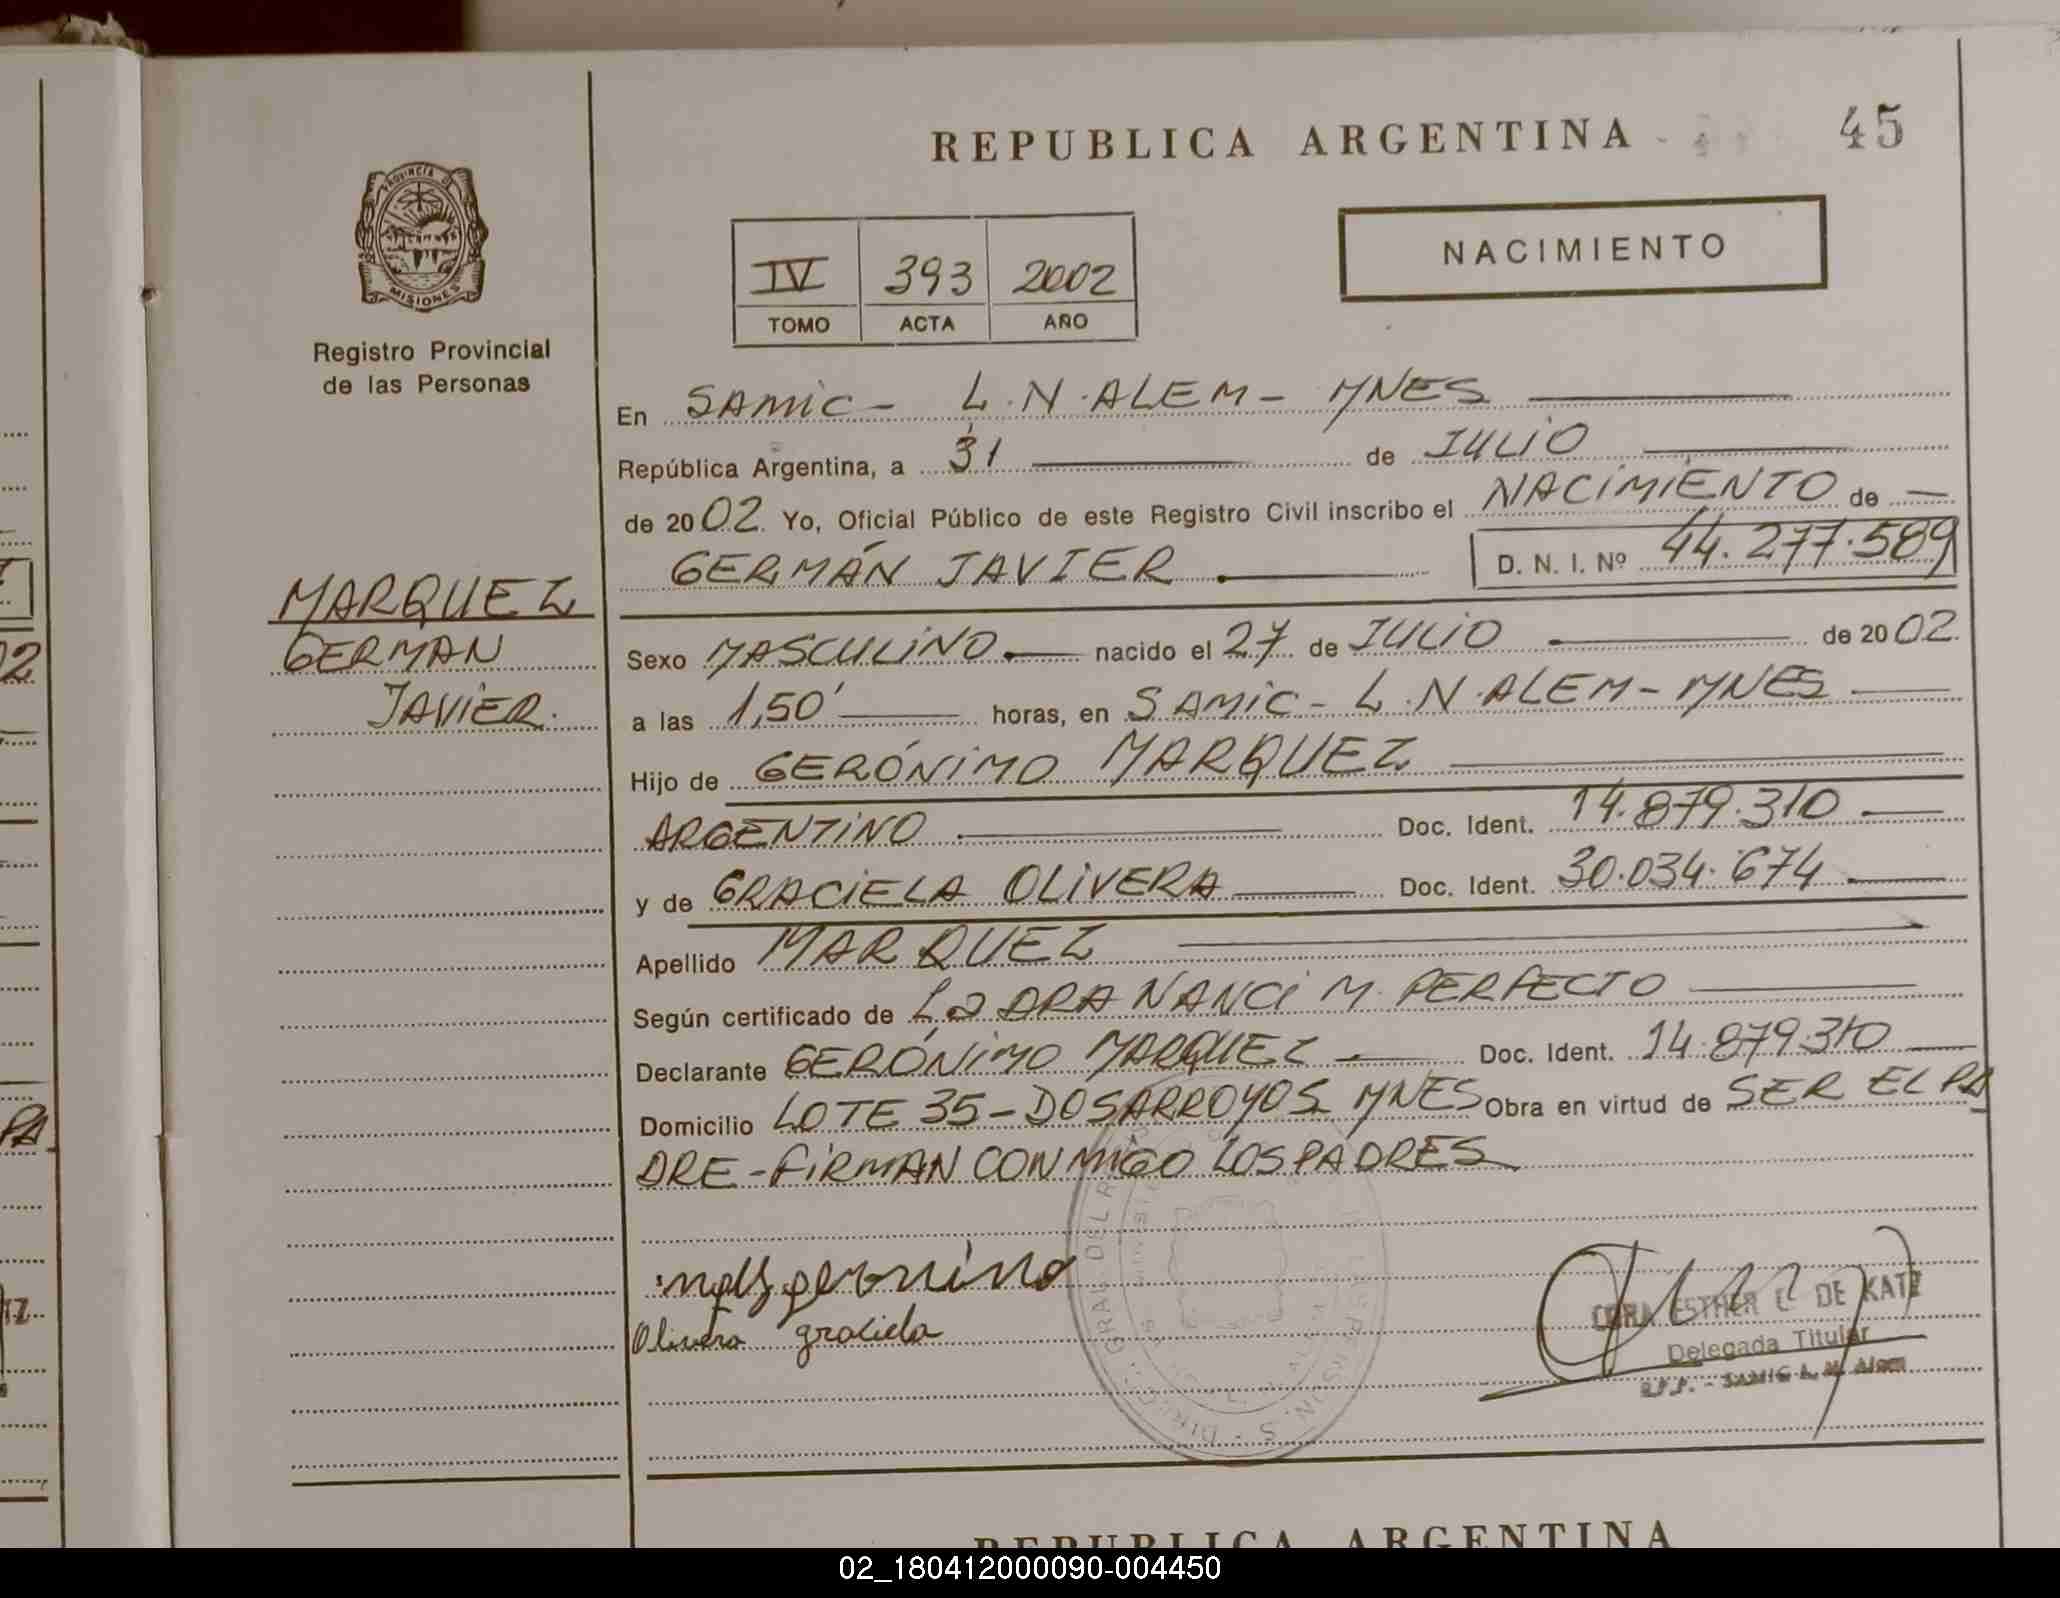 REPUBLICA ARGENTINA
45
PROVINCIA DE
MISIONES
Registro Provincial
de las Personas
IV 393 2002
TOMO ACTA AÑO
NACIMIENTO
En SAMIC - L.N.ALEM - MNES
República Argentina, a 31 de JULIO
de 2002. Yo, Oficial Público de este Registro Civil inscribo el NACIMIENTO de
GERMÁN JAVIER D. N. I. Nº 44.277.589
MARQUEZ
GERMAN
JAVIER.
Sexo MASCULINO. nacido el 27 de JULIO de 2002.
a las 1,50' horas, en SAMIC - L.N.ALEM - MNES
Hijo de GERÓNIMO MARQUEZ
ARGENTINO Doc. Ident. 14.879.310
y de GRACIELA OLIVERA Doc. Ident. 30.034.674
Apellido MARQUEZ
Según certificado de La DRA NANCI M. PERFECTO
Declarante GERÓNIMO MARQUEZ Doc. Ident. 14.879310
Domicilio LOTE 35 - DOS ARROYOS MNES Obra en virtud de SER EL PA
DRE - FIRMAN CONMIGO LOS PADRES
geronimo
Olivera graciela
ESTHER DE KATZ
Delegada Titular
SAMIC L. N. Alem
REPUBLICA ARGENTINA
02_180412000090-004450